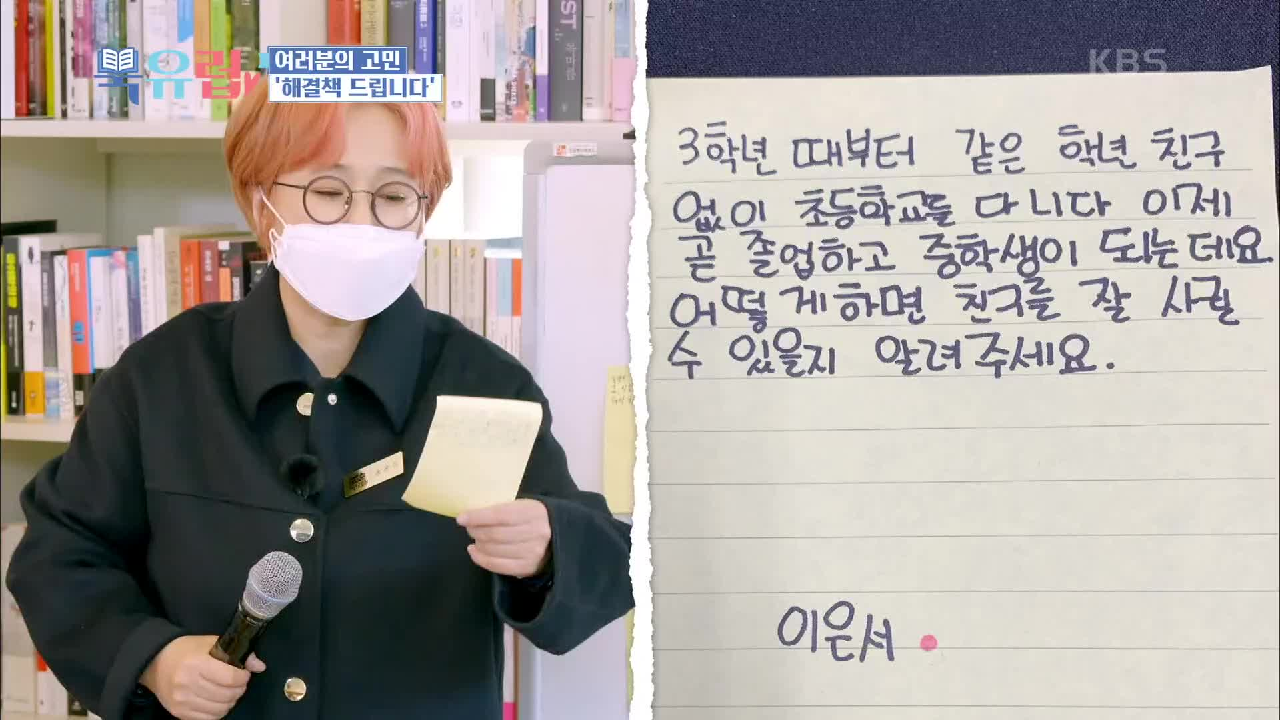 북유럽
여러분의 고민
'해결책 드립니다'
KBS
3학년 때부터 같은 학년 친구
없이 초등학교를 다니다 이제
곧 졸업하고 중학생이 되는데요
어떻게하면 친구를 잘 사귈
수 있을지 알려주세요.
이은서